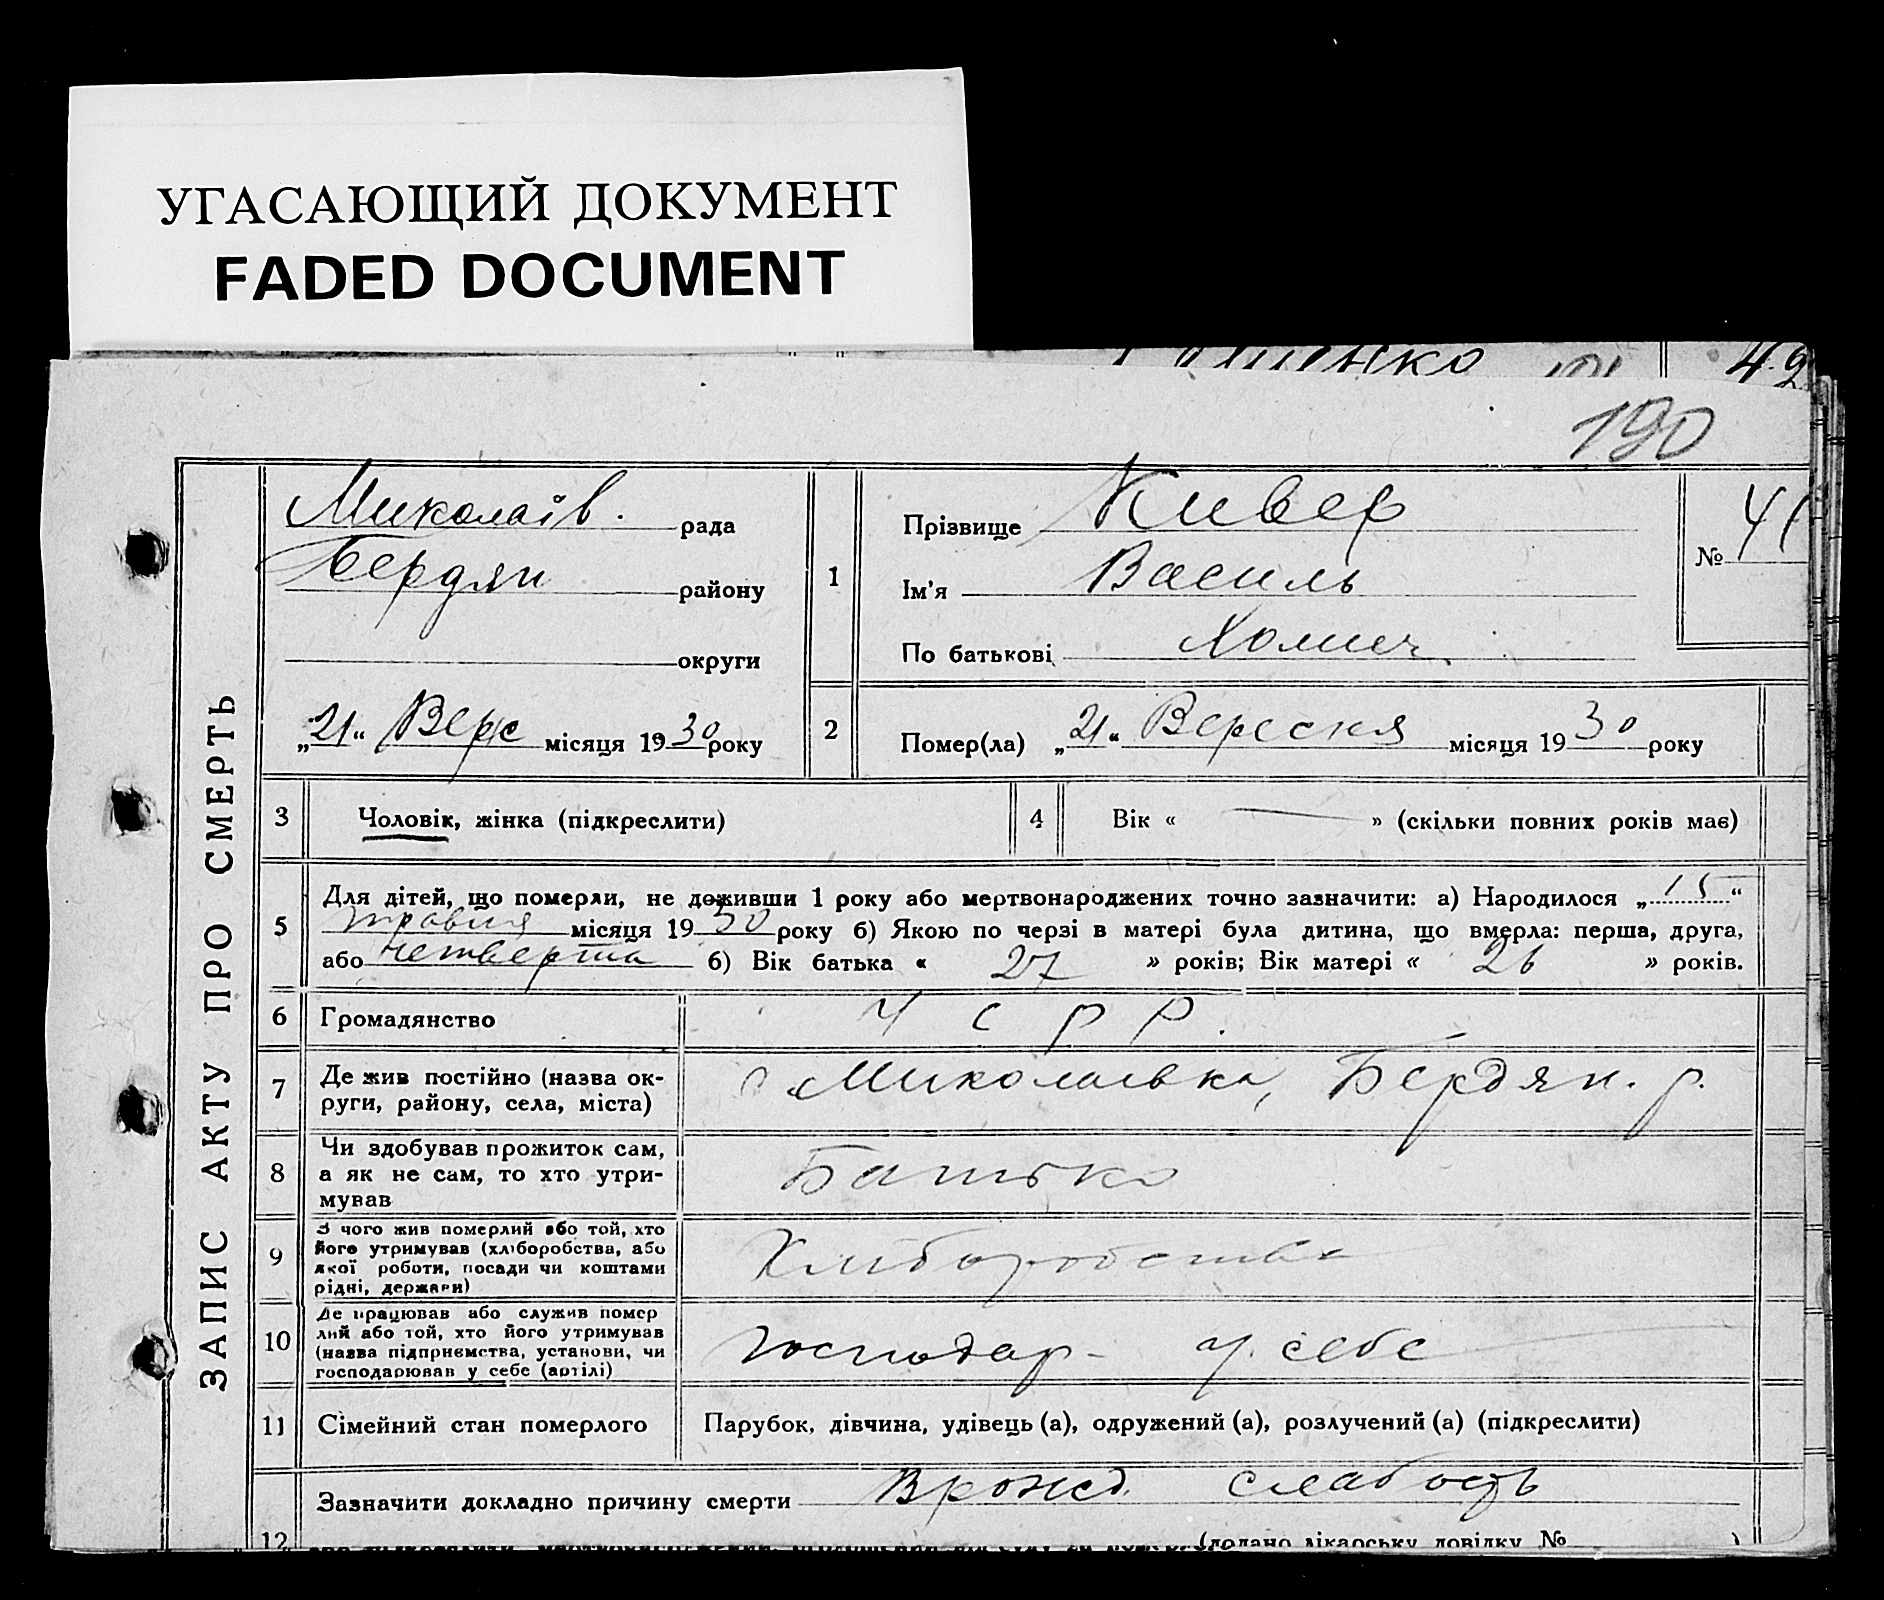 УГАСАЮЩИЙ ДОКУМЕНТ
FADED DOCUMENT
42
190
ЗАПИС АКТУ ПРО СМЕРТЬ
Миколаїв. рада
Бердян району
округи
„21“ Верс місяця 1930 року
1
Прізвище Кивер
Ім'я Василь
По батькові Хомич
№ 41
2
Помер(ла) „21“ Вересня місяця 1930 року
3 Чоловік, жінка (підкреслити)
4 Вік « — » (скільки повних років має)
5 Для дітей, що померли, не доживши 1 року або мертвонароджених точно зазначити: а) Народилося „15“
травня місяця 1930 року б) Якою по черзі в матері була дитина, що вмерла: перша, друга,
або четверта б) Вік батька « 27 » років; Вік матері « 26 » років.
6 Громадянство У С Р Р.
7 Де жив постійно (назва ок-
руги, району, села, міста)
с Миколаївка, Бердян. р.
8 Чи здобував прожиток сам,
а як не сам, то хто утри-
мував
Батько
9 З чого жив померлий або той, хто
його утримував (хліборобства, або
якої роботи, посади чи коштами
рідні, держави)
Хліборобства
10 Де працював або служив помер
лий або той, хто його утримував
(назва підприємства, установи, чи
господарював у себе (артілі)
Господар - у себе
11 Сімейний стан померлого Парубок, дівчина, удівець (а), одружений (а), розлучений (а) (підкреслити)
Зазначити докладно причину смерти Врожд. слабость
12 (додано лікарську довідку № )